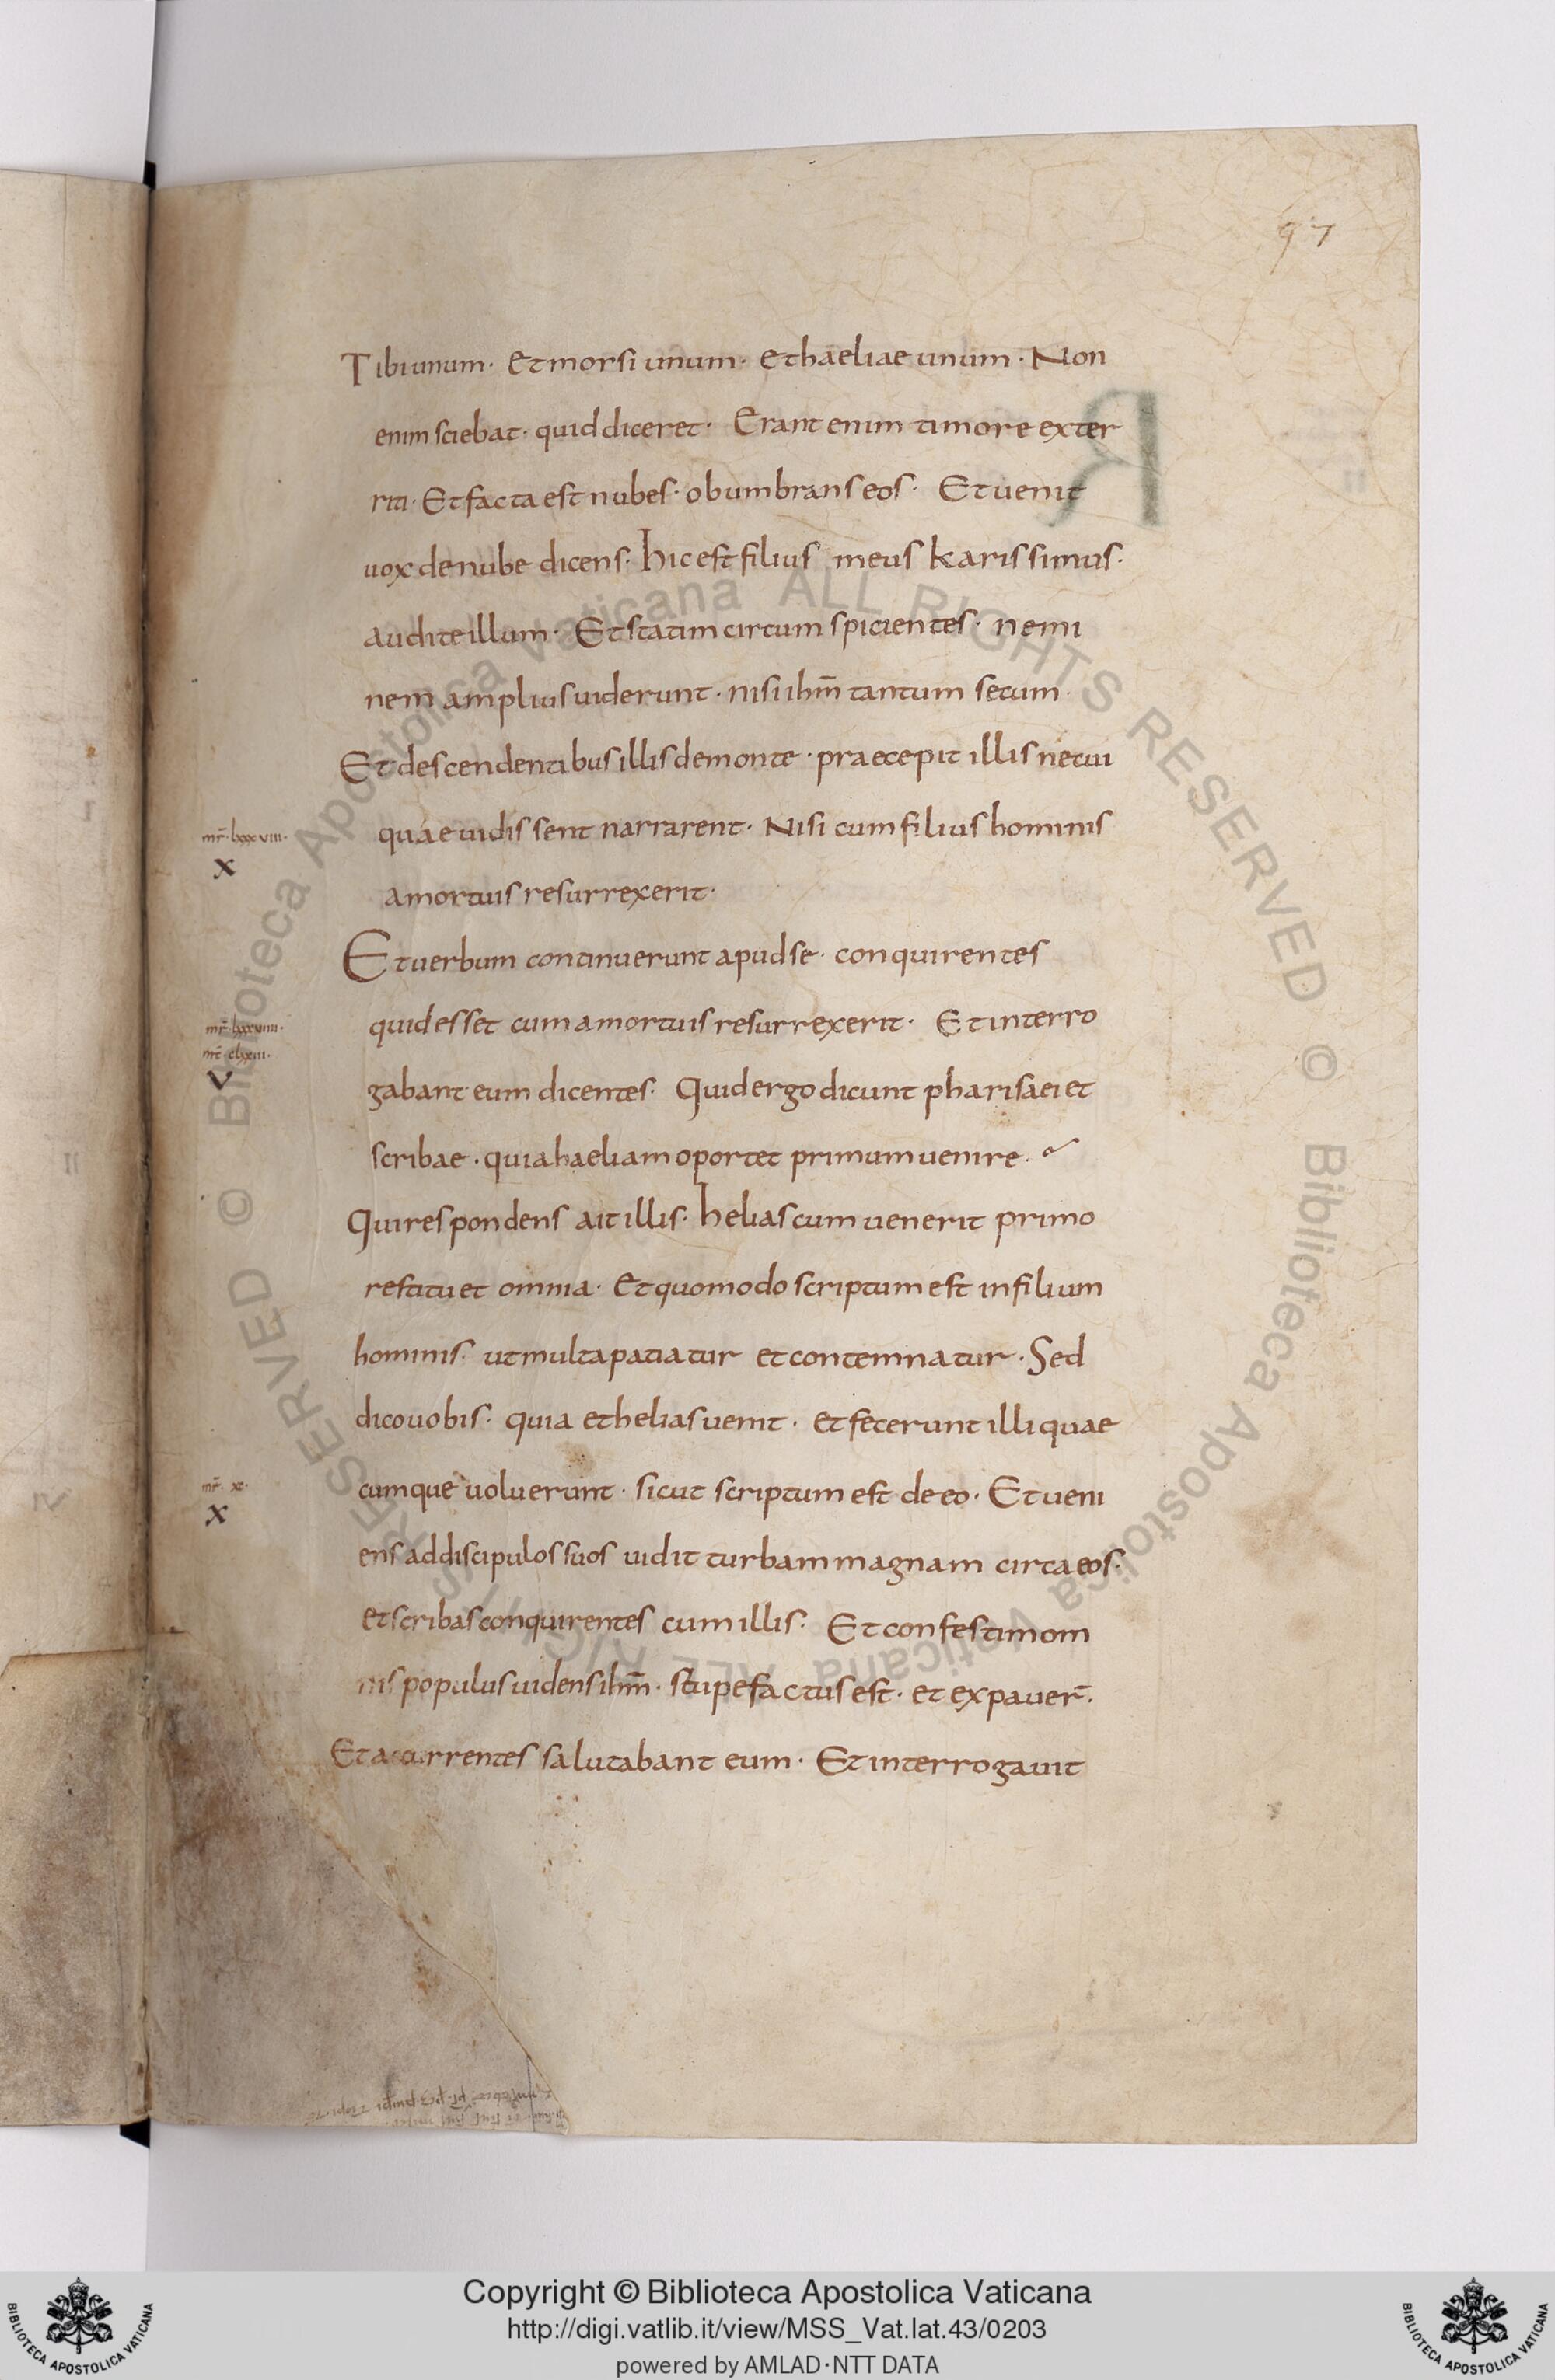 97
Tibi unum · Et morsi unum · et haeliae unum · Non
enim sciebat · quid diceret · Erant enim timore exter
riti · Et facta est nubes · obumbrans eos · Et uenit
uox de nube dicens · hic est filius meus karissimus ·
audite illum · Et statim circumspicientes · nemi
nem amplius uiderunt · nisi ihm̅ tantum secum
Et descendentibus illis de monte · praecepit illis ne cui
quae uidissent narrarent · Nisi cum filius hominis
mr̅ · lxxxviii ·
X
a mortuis resurrexerit ·
Et uerbum continuerunt apud se · conquirentes
quid esset cum a mortuis resurrexerit · Et interro
mr̅ · lxxxviiii ·
mt̅ · clxxiii ·
V
gabant eum dicentes · Quid ergo dicunt pharisaei et
scribae · quia haeliam oportet primum uenire ·
Qui respondens ait illis · helias cum uenerit primo
restituet omnia · Et quomodo scriptum est in filium
hominis · ut multa patiatur et contemnatur · Sed
dico uobis · quia et helias uenit · et fecerunt illi quae
cumque uoluerunt · sicut scriptum est de eo · Et ueni
mr̅ · xc ·
X
ens ad discipulos suos uidit turbam magnam circa eos ·
et scribas conquirentes cum illis · Et confestim om
nis populus uidens ihm̅ · stupefactus est · et expauer̅ ·
Et accurrentes salutabant eum · Et interrogauit
Copyright © Biblioteca Apostolica Vaticana
http://digi.vatlib.it/view/MSS_Vat.lat.43/0203
powered by AMLAD·NTT DATA
BIBLIOTECA APOSTOLICA VATICANA
BIBLIOTECA APOSTOLICA VATICANA
Biblioteca Apostolica Vaticana ALL RIGHTS RESERVED ©
Biblioteca Apostolica Vaticana ALL RIGHTS RESERVED ©